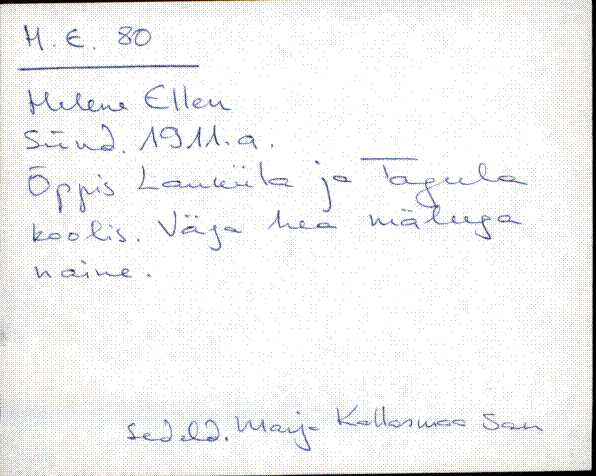 H. E. 80
Helene Ellen
Sünd. 1911. a.
Õppis Lauküla ja Tagula
koolis. Väga hea mäluga
naine.
sedeld. Marja Kallasmaa San